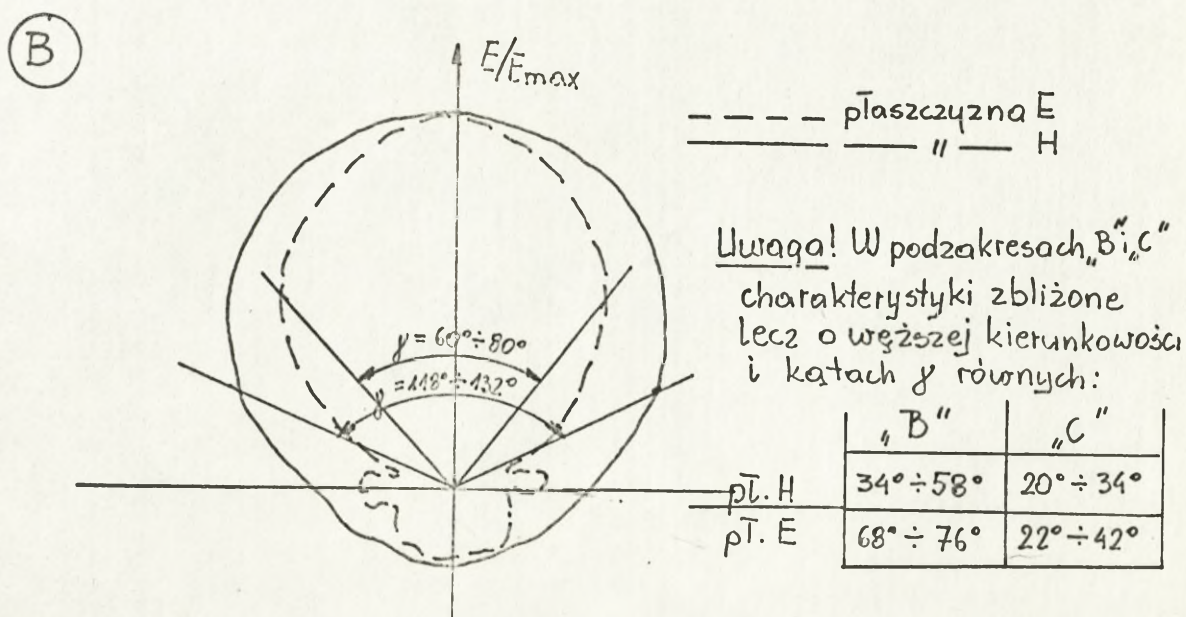 B
E/Emax
płaszczyzna E
— " — H
Uwaga! W podzakresach „B" i „C"
charakterystyki zbliżone
lecz o węższej kierunkowości
i kątach γ równych:
γ = 60° ÷ 80°
γ = 118° ÷ 132°
„B" „C"
pł. H 34° ÷ 58° 20° ÷ 34°
pł. E 68° ÷ 76° 22° ÷ 42°